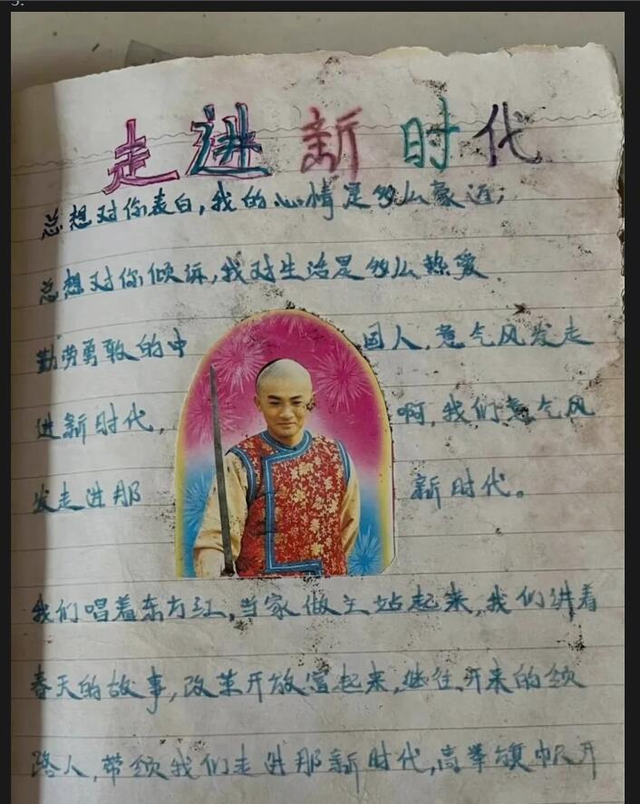 走进新时代
总想对你表白,我的心情是多么豪迈;
总想对你倾诉,我对生活是多么热爱
勤劳勇敢的中国人,意气风发走
进新时代,啊,我们意气风
发走进那新时代。
我们唱着东方红,当家做主站起来,我们讲着
春天的故事,改革开放富起来,继往开来的领
路人,带领我们走进那新时代,高举旗帜开